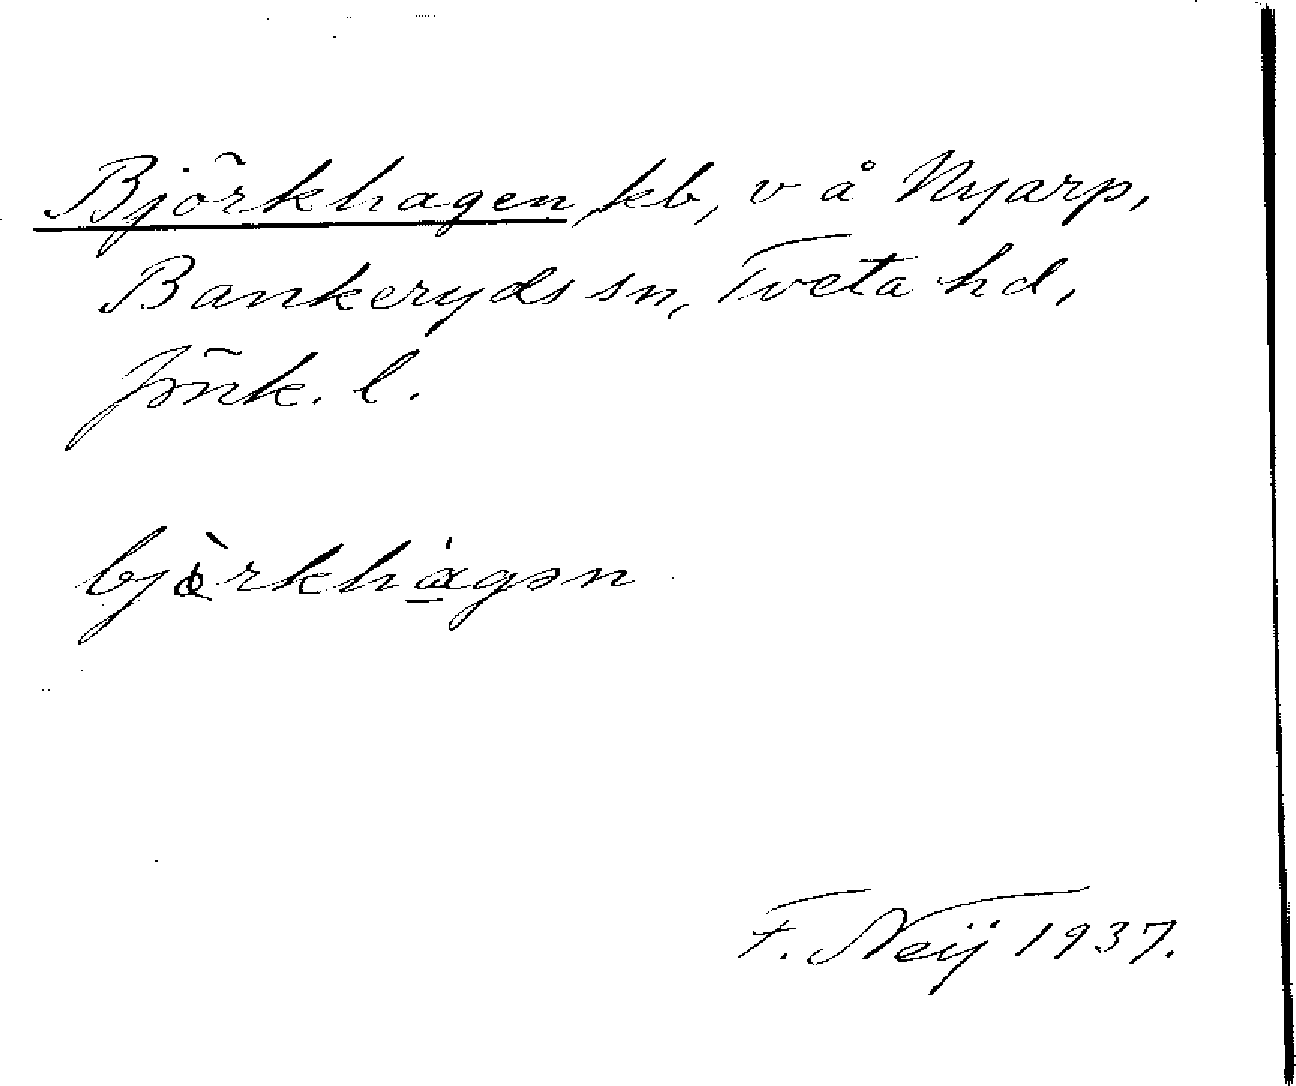 Björkhagen kb, v å Nyarp,
Bankeryds sn, Tveta hd,
Jönk. l.
bjòrkhágən
F. Neij 1937.